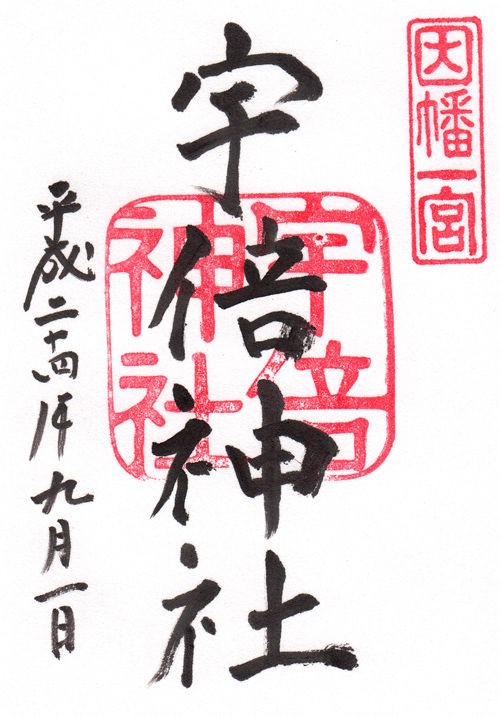 因幡一宮
宇倍神社
宇倍
神社
平成二十四年九月一日